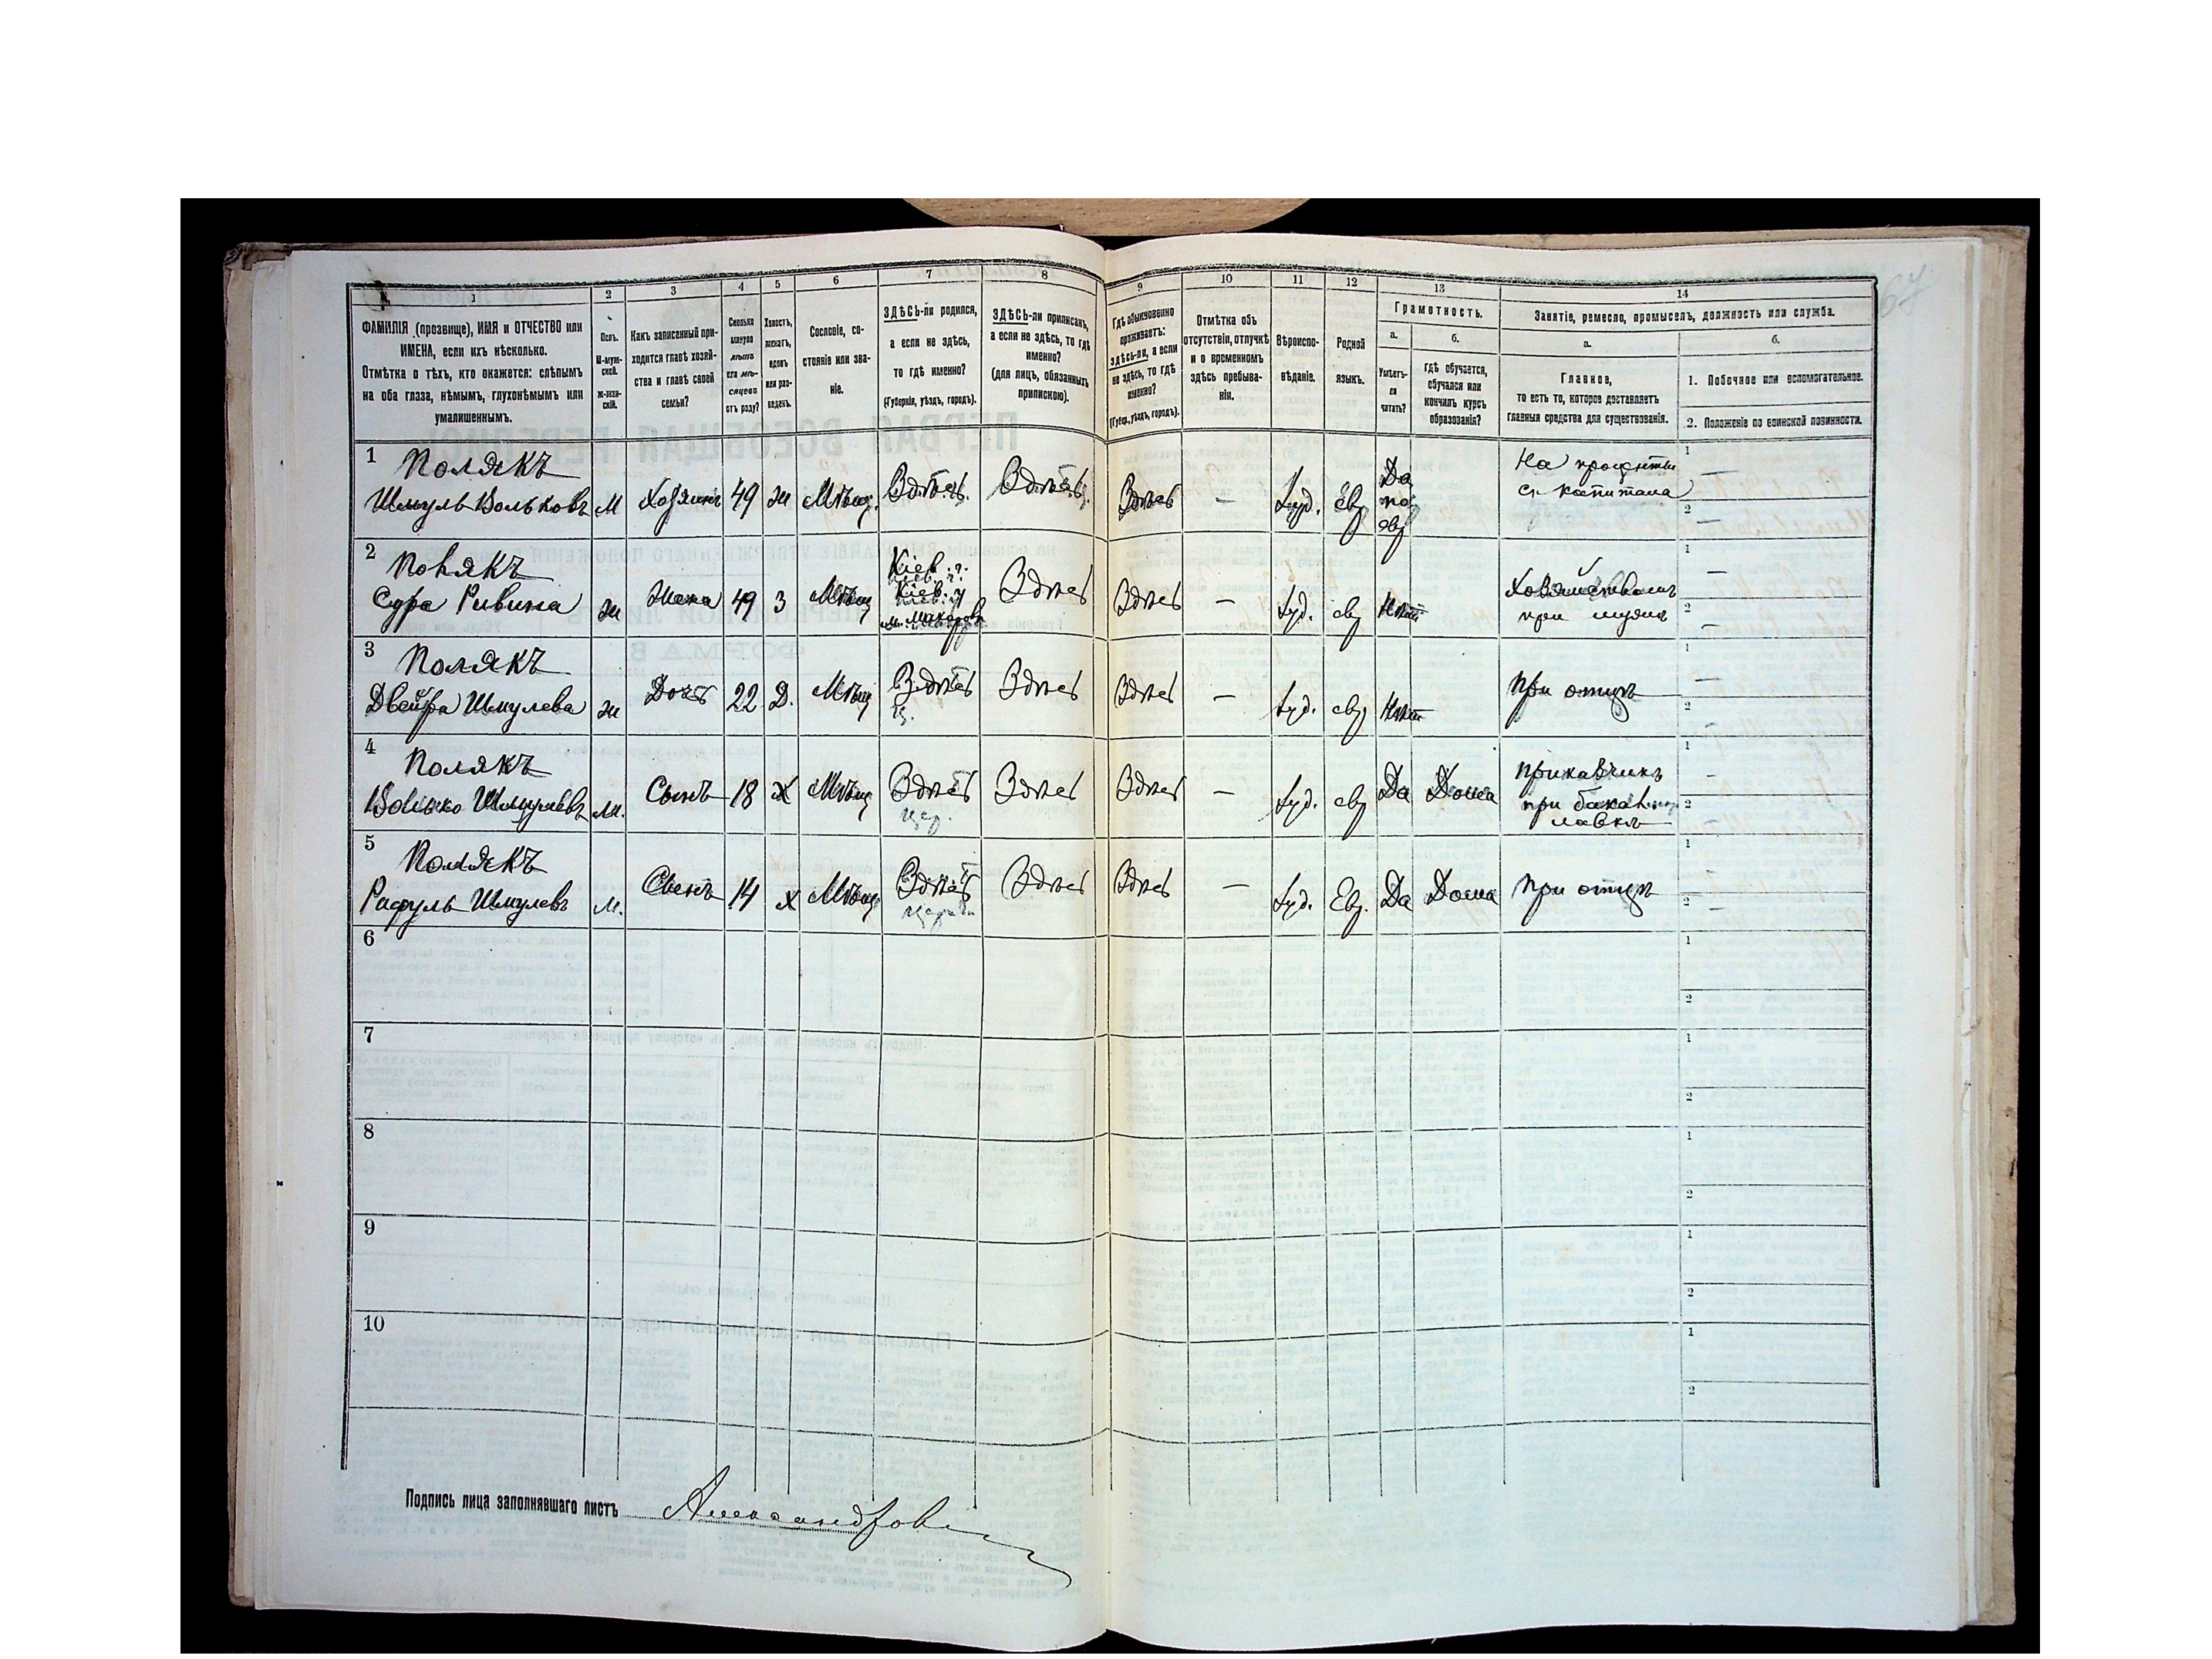 1 2 3 4 5 6 7 8 9 10 11 12 13 14
ФАМИЛІЯ (прозвище), ИМЯ и ОТЧЕСТВО или
ИМЕНА, если ихъ нѣсколько.
Отмѣтка о тѣхъ, кто окажется: слѣпымъ
на оба глаза, нѣмымъ, глухонѣмымъ или
умалишеннымъ.
Полъ.
М-муж-
ской.
Ж-жен-
скій.
Какъ записанный при-
ходится главѣ хозяй-
ства и главѣ своей
семьи?
Сколько
минуло
лѣтъ
или мѣ-
сяцевъ
отъ роду?
Холостъ,
женатъ,
вдовъ
или раз-
веденъ.
Сословіе, со-
стояніе или зва-
ніе.
ЗДѢСЬ-ли родился,
а если не здѣсь,
то гдѣ именно?
(Губернія, уѣздъ, городъ).
ЗДѢСЬ-ли приписанъ,
а если не здѣсь, то гдѣ
именно?
(для лицъ, обязанныхъ
припискою).
Гдѣ обыкновенно
проживаетъ:
здѣсь-ли, а если
не здѣсь, то гдѣ
именно?
(Губер., уѣздъ, городъ).
Отмѣтка объ
отсутствіи, отлучкѣ
и о временномъ
здѣсь пребыва-
ніи.
Вѣроиспо-
вѣданіе.
Родной
языкъ.
Грамотность.
а.
Умѣетъ-
ли
читать?
б.
гдѣ обучается,
обучался или
кончилъ курсъ
образованія?
Занятіе, ремесло, промыселъ, должность или служба.
а.
Главное,
то есть то, которое доставляетъ
главныя средства для существованія.
б.
1. Побочное или вспомогательное.
2. Положеніе по воинской повинности.
1 Полякъ
Шмуль Вольковъ М Хозяинъ 49 Ж Мѣщ. Здѣсь Здѣсь Здѣсь — Іуд. Евр Да по евр
На проценты
съ капитала
1 —
2 —
2 Полякъ
Сура Ривина Ж Жена 49 З Мѣщ
Кіев. г.
Кіев. у
м. Макаров
Здѣсь Здѣсь — Іуд. евр Нѣт
Хозяйствомъ
при мужѣ
1 —
2 —
3 Полякъ
Двейра Шмулева Ж Дочь 22 Д. Мѣщ Здѣсь Здѣсь Здѣсь — Іуд. евр Нѣт При отцѣ
1 —
2 —
4 Полякъ
Волько Шмулевъ М. Сынъ 18 Х Мѣщ Здѣсь Здѣсь Здѣсь — Іуд. евр Да Дома
Приказчикъ
при бакал.
лавкѣ
1 —
2 —
5 Полякъ
Рафуль Шмулевъ М. Сынъ 14 Х Мѣщ Здѣсь Здѣсь Здѣсь — Іуд. Евр. Да Дома При отцѣ
1 —
2 —
6
1
2
7
1
2
8
1
2
9
1
2
10
1
2
Подпись лица заполнявшаго листъ